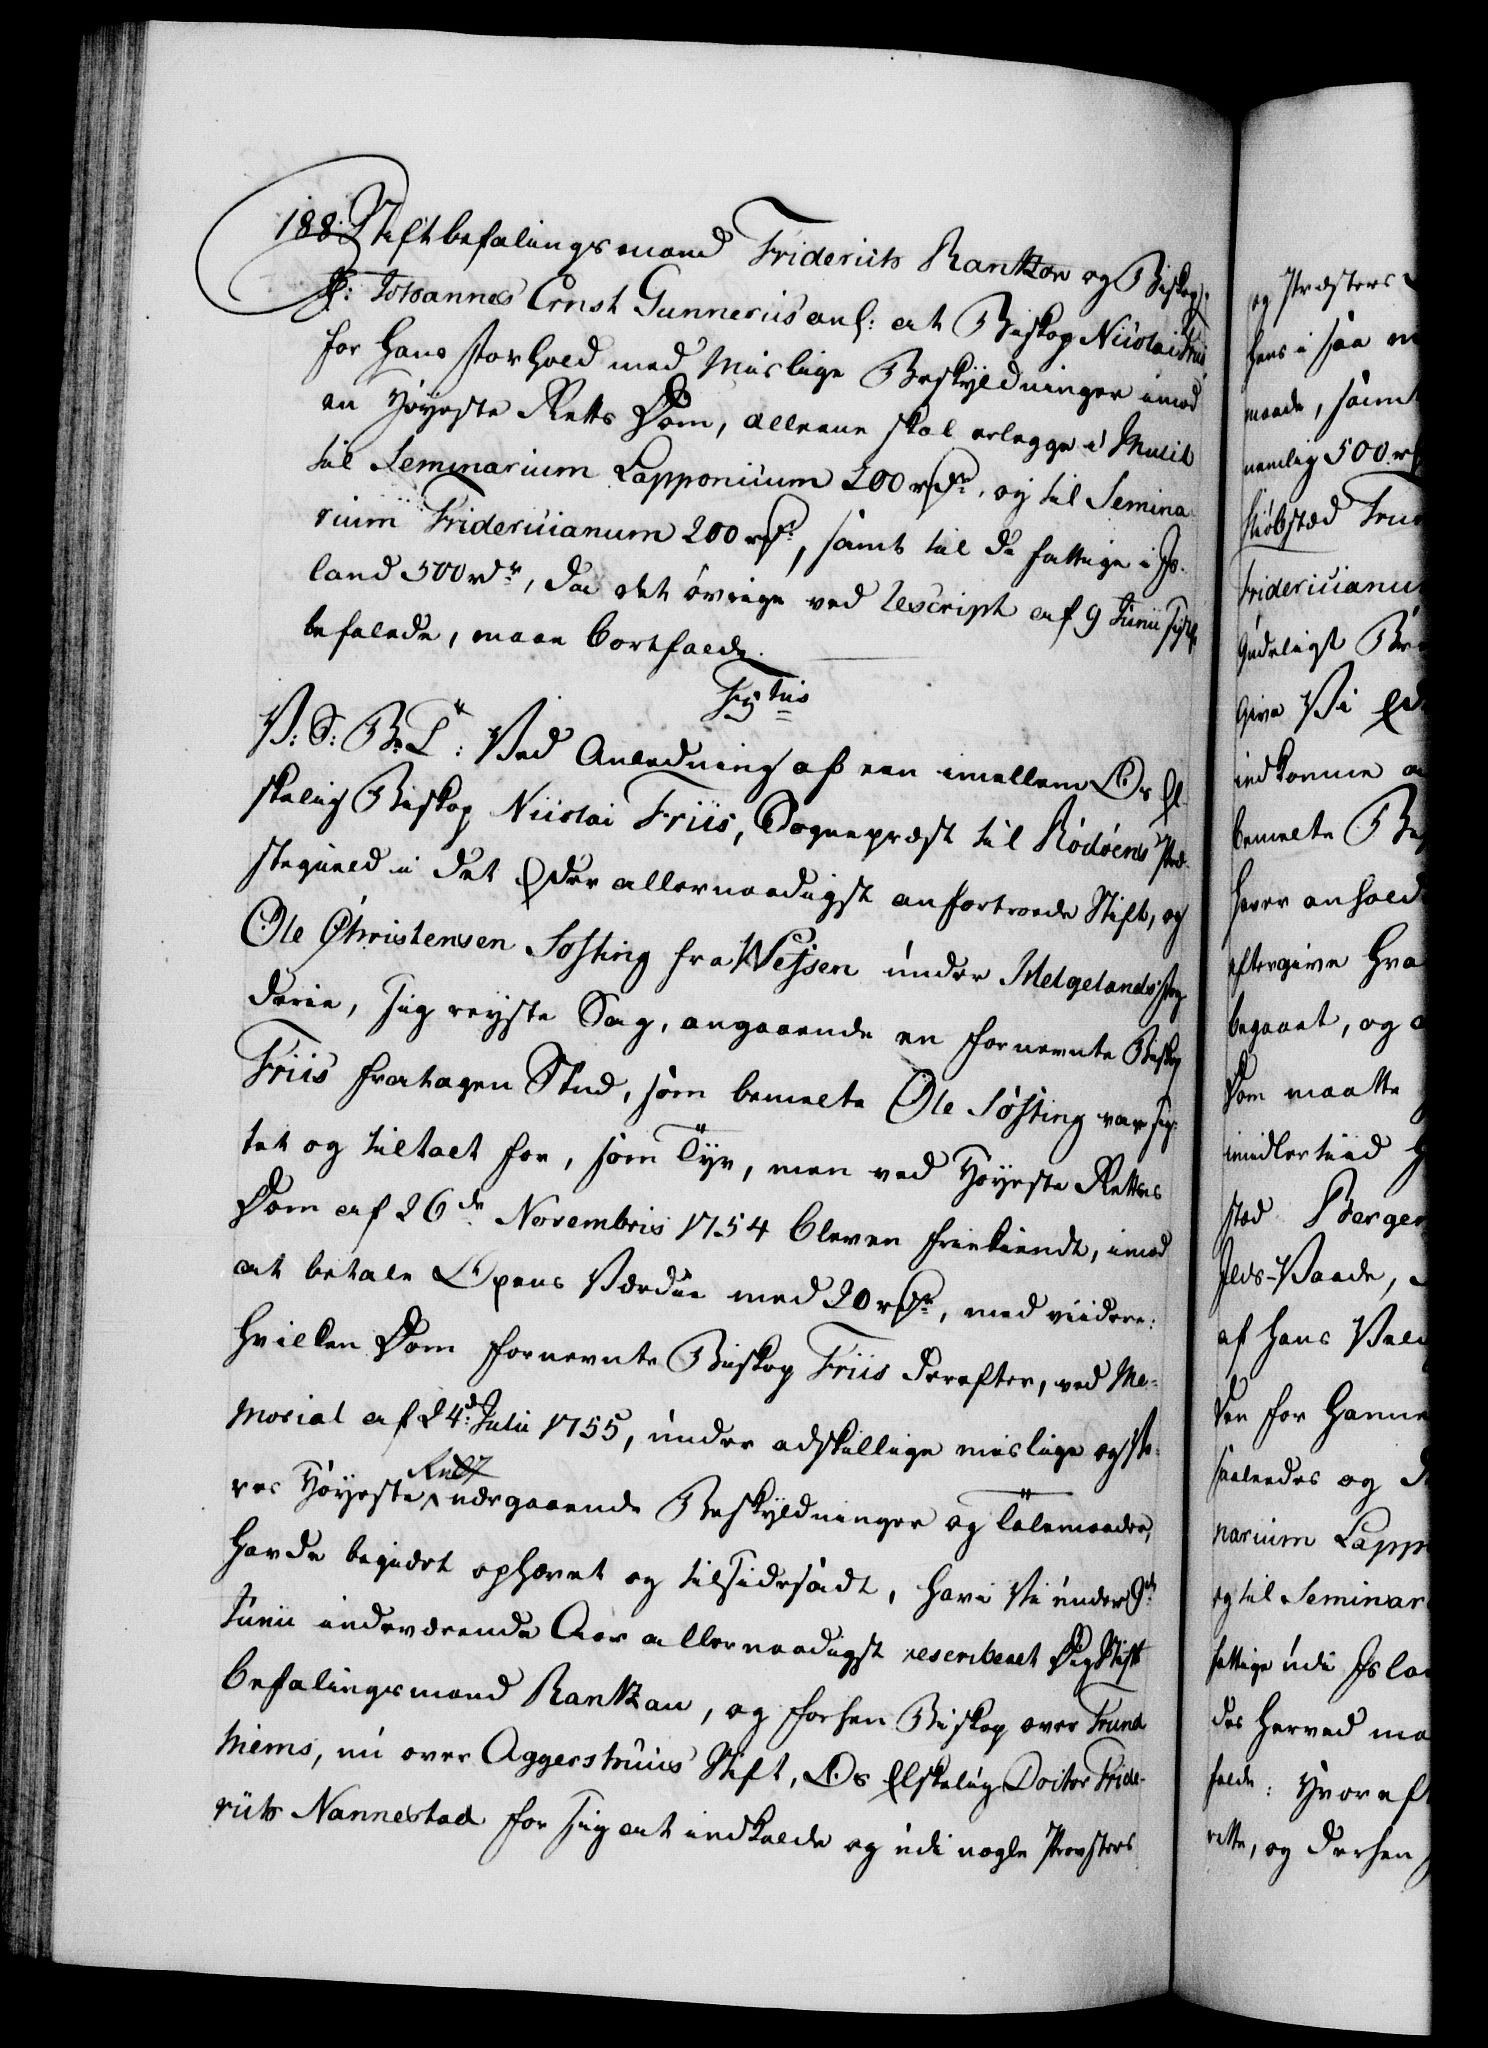 188. Stiftbefalingsmand Friderich Rantzow og Biskop
Hr: Johannes Ernst Gunnerus anl: at Biskop Nicolai Friis,
for Hans forhold med Mislige Beskyldninger imod
en Höyeste Retts Dom, alleene skal erlegge i Mulct
til Seminarium Lapponicum 200 rdr. og til Semina
rium Fridericianum 200 rdr., samt til de fattige i Is-
land 500 rdr, da det övrige ved Rescript af 9 Junii sidst
befalede, maae bortfalde.
Frid 5tus
V: S: B: T: Ved Anledning af een imellem Os El-
skelig Biskop Nicolai Friis, Sognepræst til Rödöens Præ-
stegield i det Eder allernaadigst anfortroede Stift, og
Ole Christensen Söfting fra Wefsen under Helgelands fog-
derie, sig reyste Sag, angaaende en fornevnte Biskop
Friis fratagen Stud, som bemelte Ole Söfting var sig-
tet og tiltalt for, som Tÿv, men ved Höyeste Rettes
Dom af 26de Novembris 1754 bleven frikiendt, imod
at betale Oxens Værdie med 20 rdr., med viidere:
Hvilken Dom fornevnte Biskop Friis derefter, ved Me-
morial af 24de Julii 1755, under adskillige mislige og Vo-
res Höyeste Rett nærgaaende Beskyldninger og Talemaader,
havde begiært ophævet og tilsidesadt, have Vi under 9de
Junii indeværende Aar allernaadigst rescriberet Dig Stift
befalingsmand Rantzau, og forhen Biskop over Trund
hiems, nu over Aggershuus Stift, Os Elskelig Doctor Fride-
rich Nannestad for sig at indkalde og udi nogle Provsters
og Præsters
hans i saa
maade, samt
nemlig 500 r
Kiöbsted Tru
Fridericianu
Gudeligt
Give Vi
indkomne
bemelte
haver anhold
eftergive Hva
begaaet, og
Dom maatte
imidlertiid
stad Bergen
Ilds-Vaade,
af hans
den for Hanne
saaledes og
narium Lapp
og til Seminar
fattige udi Isla
des herved ma
falde: Hvoreft
rette, og derhen